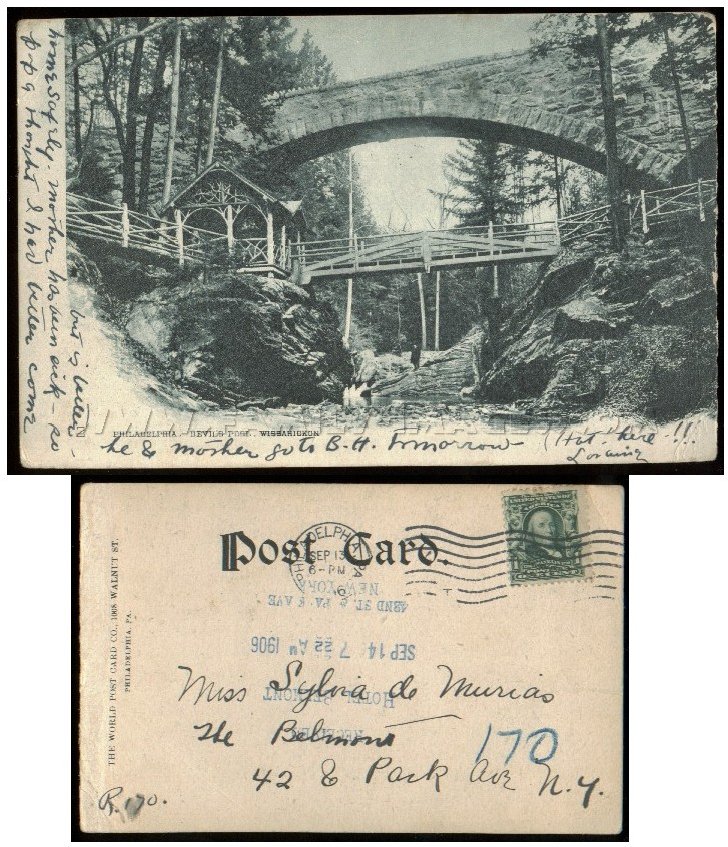 home safely. Mother has been sick - so
but is better -
pp & thought I had better come
PHILADELPHIA. - DEVILS POOL, WISSAHICKON.
he & mother go to B.H. tomorrow - (Hit here !!!
Post Card.
PHILADELPHIA, PA
SEP 13
6-PM
THE WORLD POST CARD CO., 1008 WALNUT ST.
PHILADELPHIA, PA.
42ND ST. & PARK AVE
NEW YORK
SEP 14 7 22 AM 1906
HOTEL BELMONT
RECEIVED
Miss Sylvia de Murias
The Belmont
42 & Park Ave N.Y.
170
R. 170.